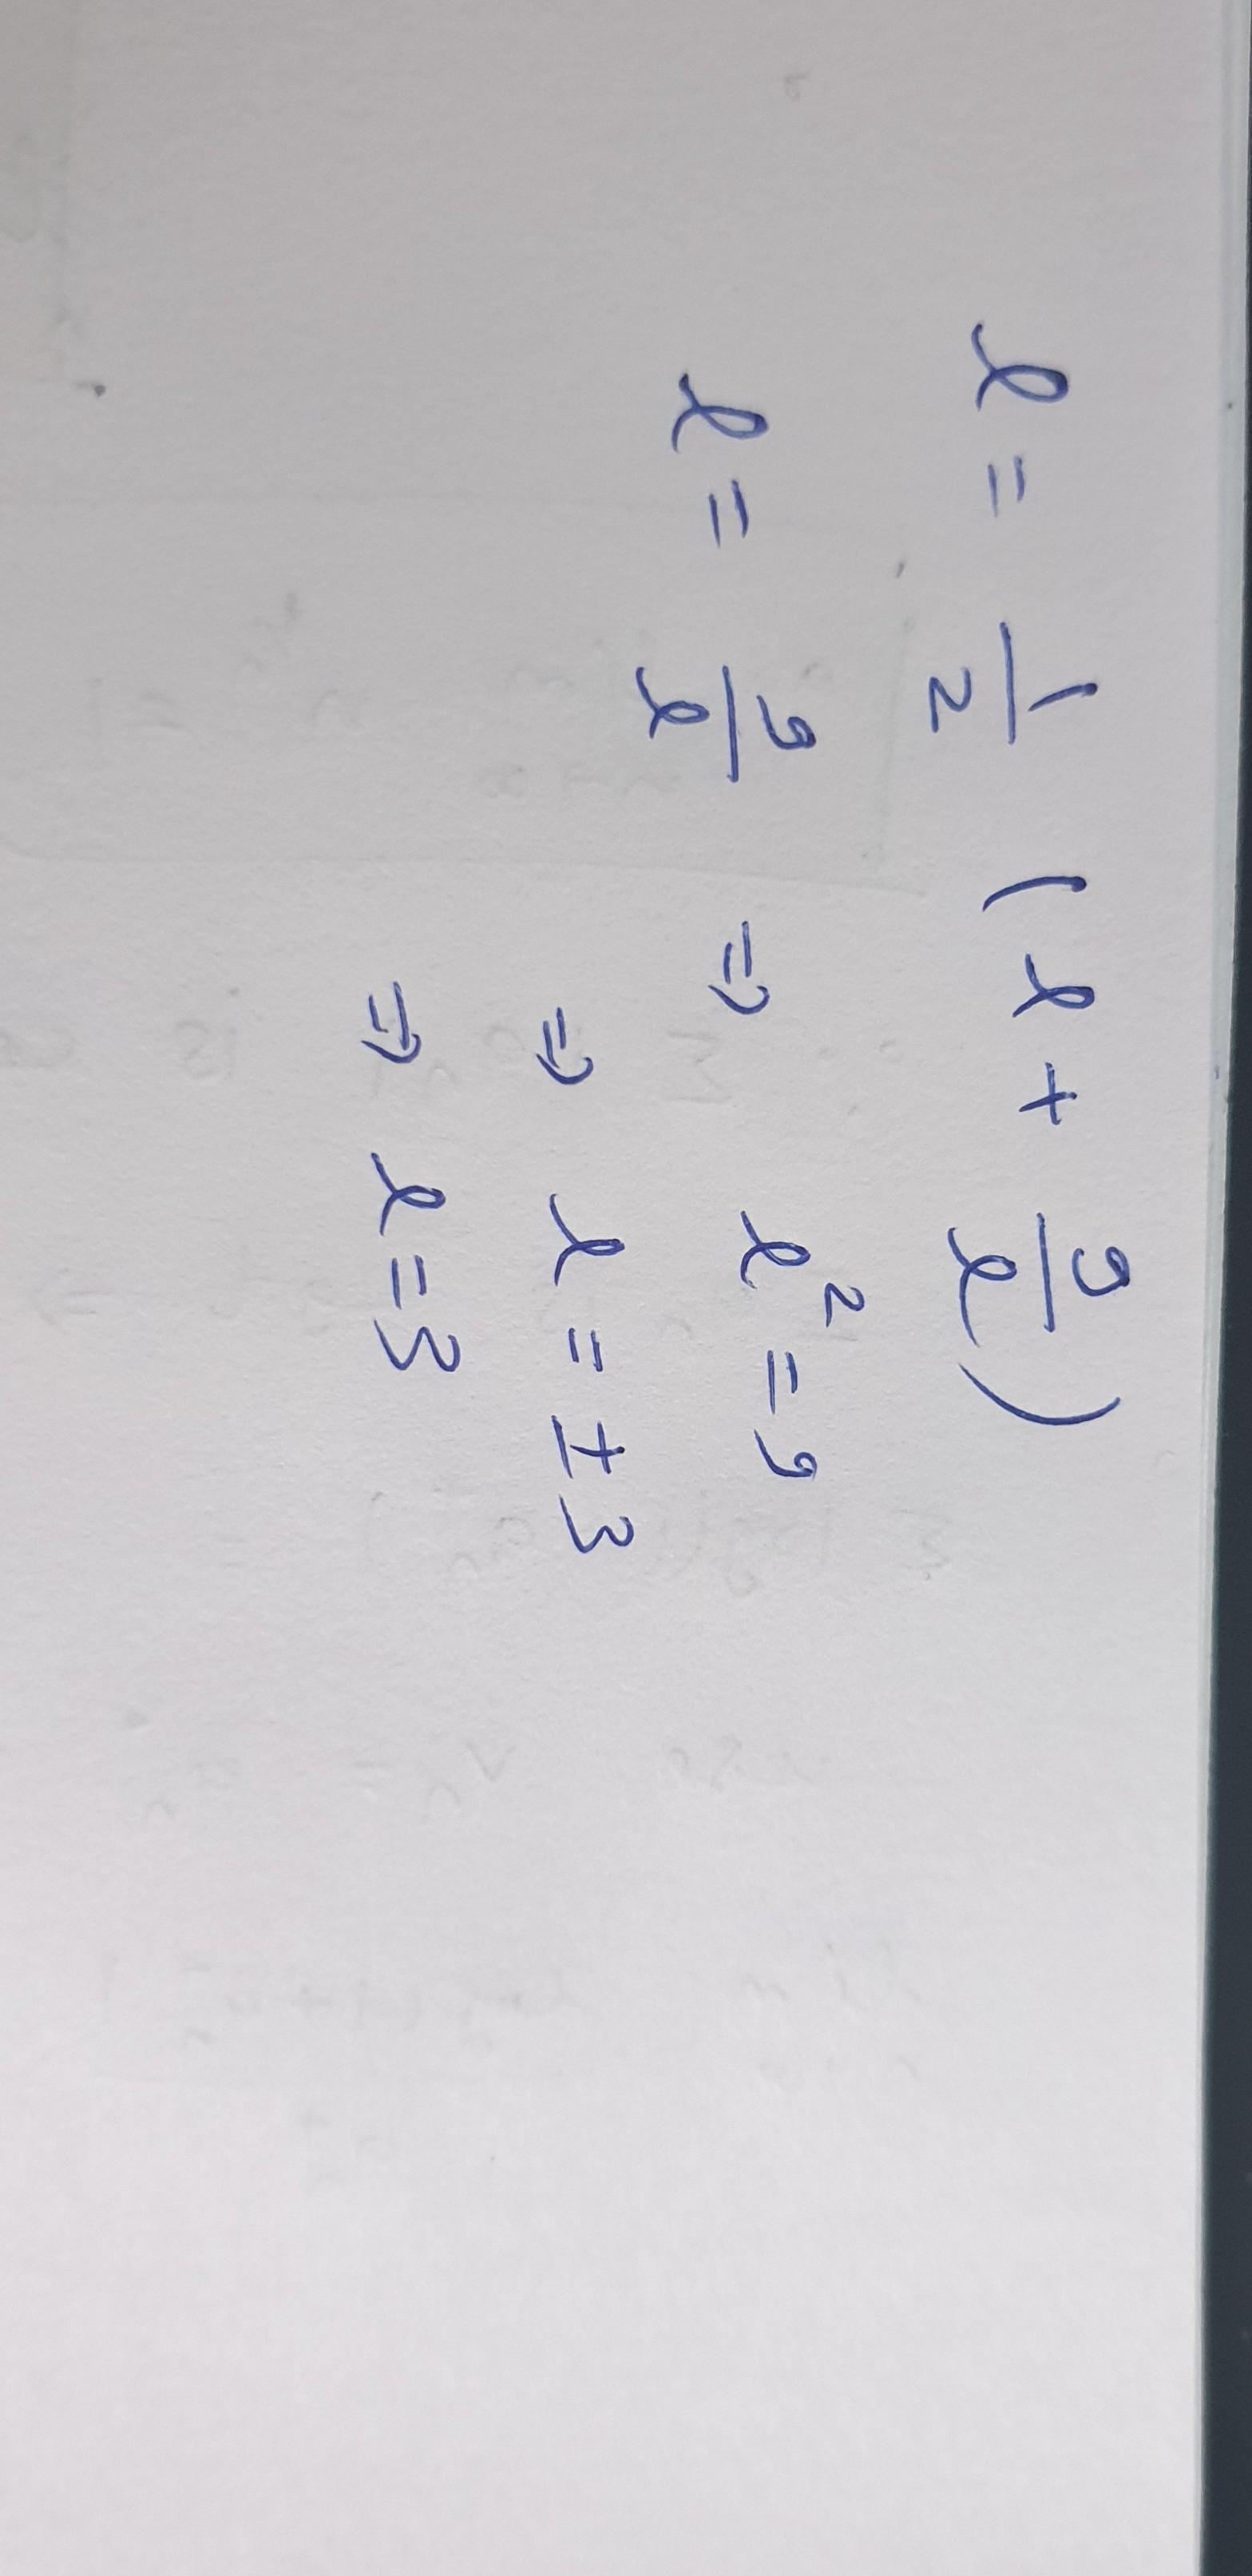 l = 1/2 (l + 9/l)
l = 9/l ⇒ l² = 9
⇒ l = ± 3
⇒ l = 3